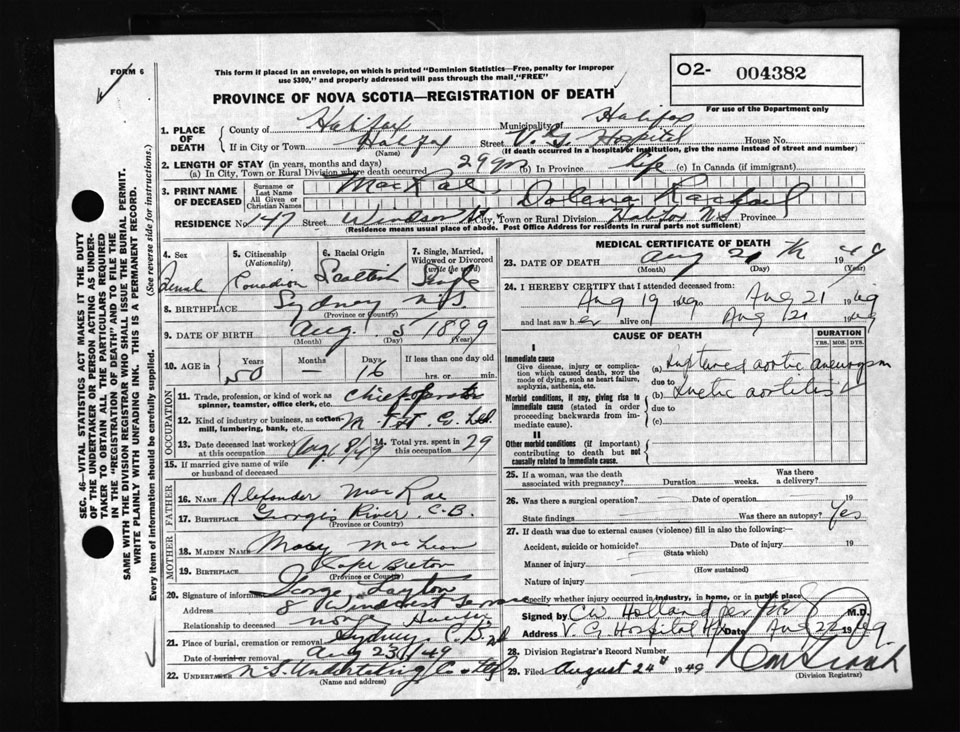 FORM 6
This form if placed in an envelope, on which is printed "Dominion Statistics—Free, penalty for improper
use $300," and properly addressed will pass through the mail "FREE"
O2- 004382
For use of the Department only
PROVINCE OF NOVA SCOTIA—REGISTRATION OF DEATH
SEC. 46—VITAL STATISTICS ACT MAKES IT THE DUTY
OF THE UNDERTAKER OR PERSON ACTING AS UNDER-
TAKER TO OBTAIN ALL THE PARTICULARS REQUIRED
IN THE "REGISTRATION OF DEATH" AND TO FILE THE
SAME WITH THE DIVISION REGISTRAR WHO SHALL ISSUE THE BURIAL PERMIT.
WRITE PLAINLY WITH UNFADING INK. THIS IS A PERMANENT RECORD.
Every item of information should be carefully supplied. (See reverse side for instructions.)
1. PLACE OF DEATH
County of Halifax Municipality of Halifax
If in City or Town Halifax Street V. G. Hospital House No.
(Name) (If death occurred in a hospital or institution, give the name instead of street and number)
2. LENGTH OF STAY (in years, months and days)
(a) In City, Town or Rural Division where death occurred 29 yrs (b) In Province life (c) In Canada (if immigrant)
3. PRINT NAME OF DECEASED
Surname or Last Name MacRae,
All Given or Christian Names Dolena Rachael
RESIDENCE No. 147 Street Windsor St. City, Town or Rural Division Halifax N.S. Province
(Residence means usual place of abode. Post Office Address for residents in rural parts not sufficient)
4. Sex Female
5. Citizenship (Nationality) Canadian
6. Racial Origin Scottish
7. Single, Married, Widowed or Divorced (write the word) Single
8. BIRTHPLACE Sydney N.S.
(Province or Country)
9. DATE OF BIRTH Aug. 5 1899
(Month) (Day) (Year)
10. AGE in Years 50 Months — Days 16 If less than one day old hrs. or min.
OCCUPATION
11. Trade, profession, or kind of work as spinner, teamster, office clerk, etc. Chief operator
12. Kind of industry or business, as cotton mill, lumbering, bank, etc. M. T. & T. Co. Ltd.
13. Date deceased last worked at this occupation Aug 18/49
14. Total yrs. spent in this occupation 29
15. If married give name of wife or husband of deceased
FATHER
16. NAME Alexander MacRae
17. BIRTHPLACE Georges River, C.B.
(Province or Country)
MOTHER
18. MAIDEN NAME Mary MacLean
19. BIRTHPLACE Cape Breton
(Province or Country)
20. Signature of informant George Layton
Address 8 Windcrest Terrace
Relationship to deceased none
21. Place of burial, cremation or removal Sydney C.B.
Date of burial or removal Aug 23/49
22. UNDERTAKER N.S. Undertaking Co Ltd
(Name and address)
MEDICAL CERTIFICATE OF DEATH
23. DATE OF DEATH Aug 21 49
(Month) (Day) (Year)
24. I HEREBY CERTIFY that I attended deceased from:
Aug 19 1949 to Aug 21 1949
and last saw her alive on Aug 21 1949
CAUSE OF DEATH
DURATION
YRS. MOS. DYS.
I
Immediate cause
Give disease, injury or complication which caused death, NOT the mode of dying, such as heart failure, asphyxia, asthenia, etc.
(a) Ruptured aortic aneurysm
due to
Morbid conditions, if any, giving rise to immediate cause (stated in order proceeding backwards from immediate cause).
(b) Luetic aortitis
due to
(c)
II
Other morbid conditions (if important) contributing to death but not causally related to immediate cause.
25. If a woman, was the death associated with pregnancy? Duration weeks. Was there a delivery?
26. Was there a surgical operation? Date of operation 19
State findings Was there an autopsy? Yes
27. If death was due to external causes (violence) fill in also the following:—
Accident, suicide or homicide? Date of injury 19
(State which)
Manner of injury
(How sustained)
Nature of injury
Specify whether injury occurred in industry, in home, or in public place
Signed by C W Holland per M.D.
Address V. G. Hospital Hfx Date Aug 22 1949.
28. Division Registrar's Record Number
29. Filed August 24th 1949
(Division Registrar)